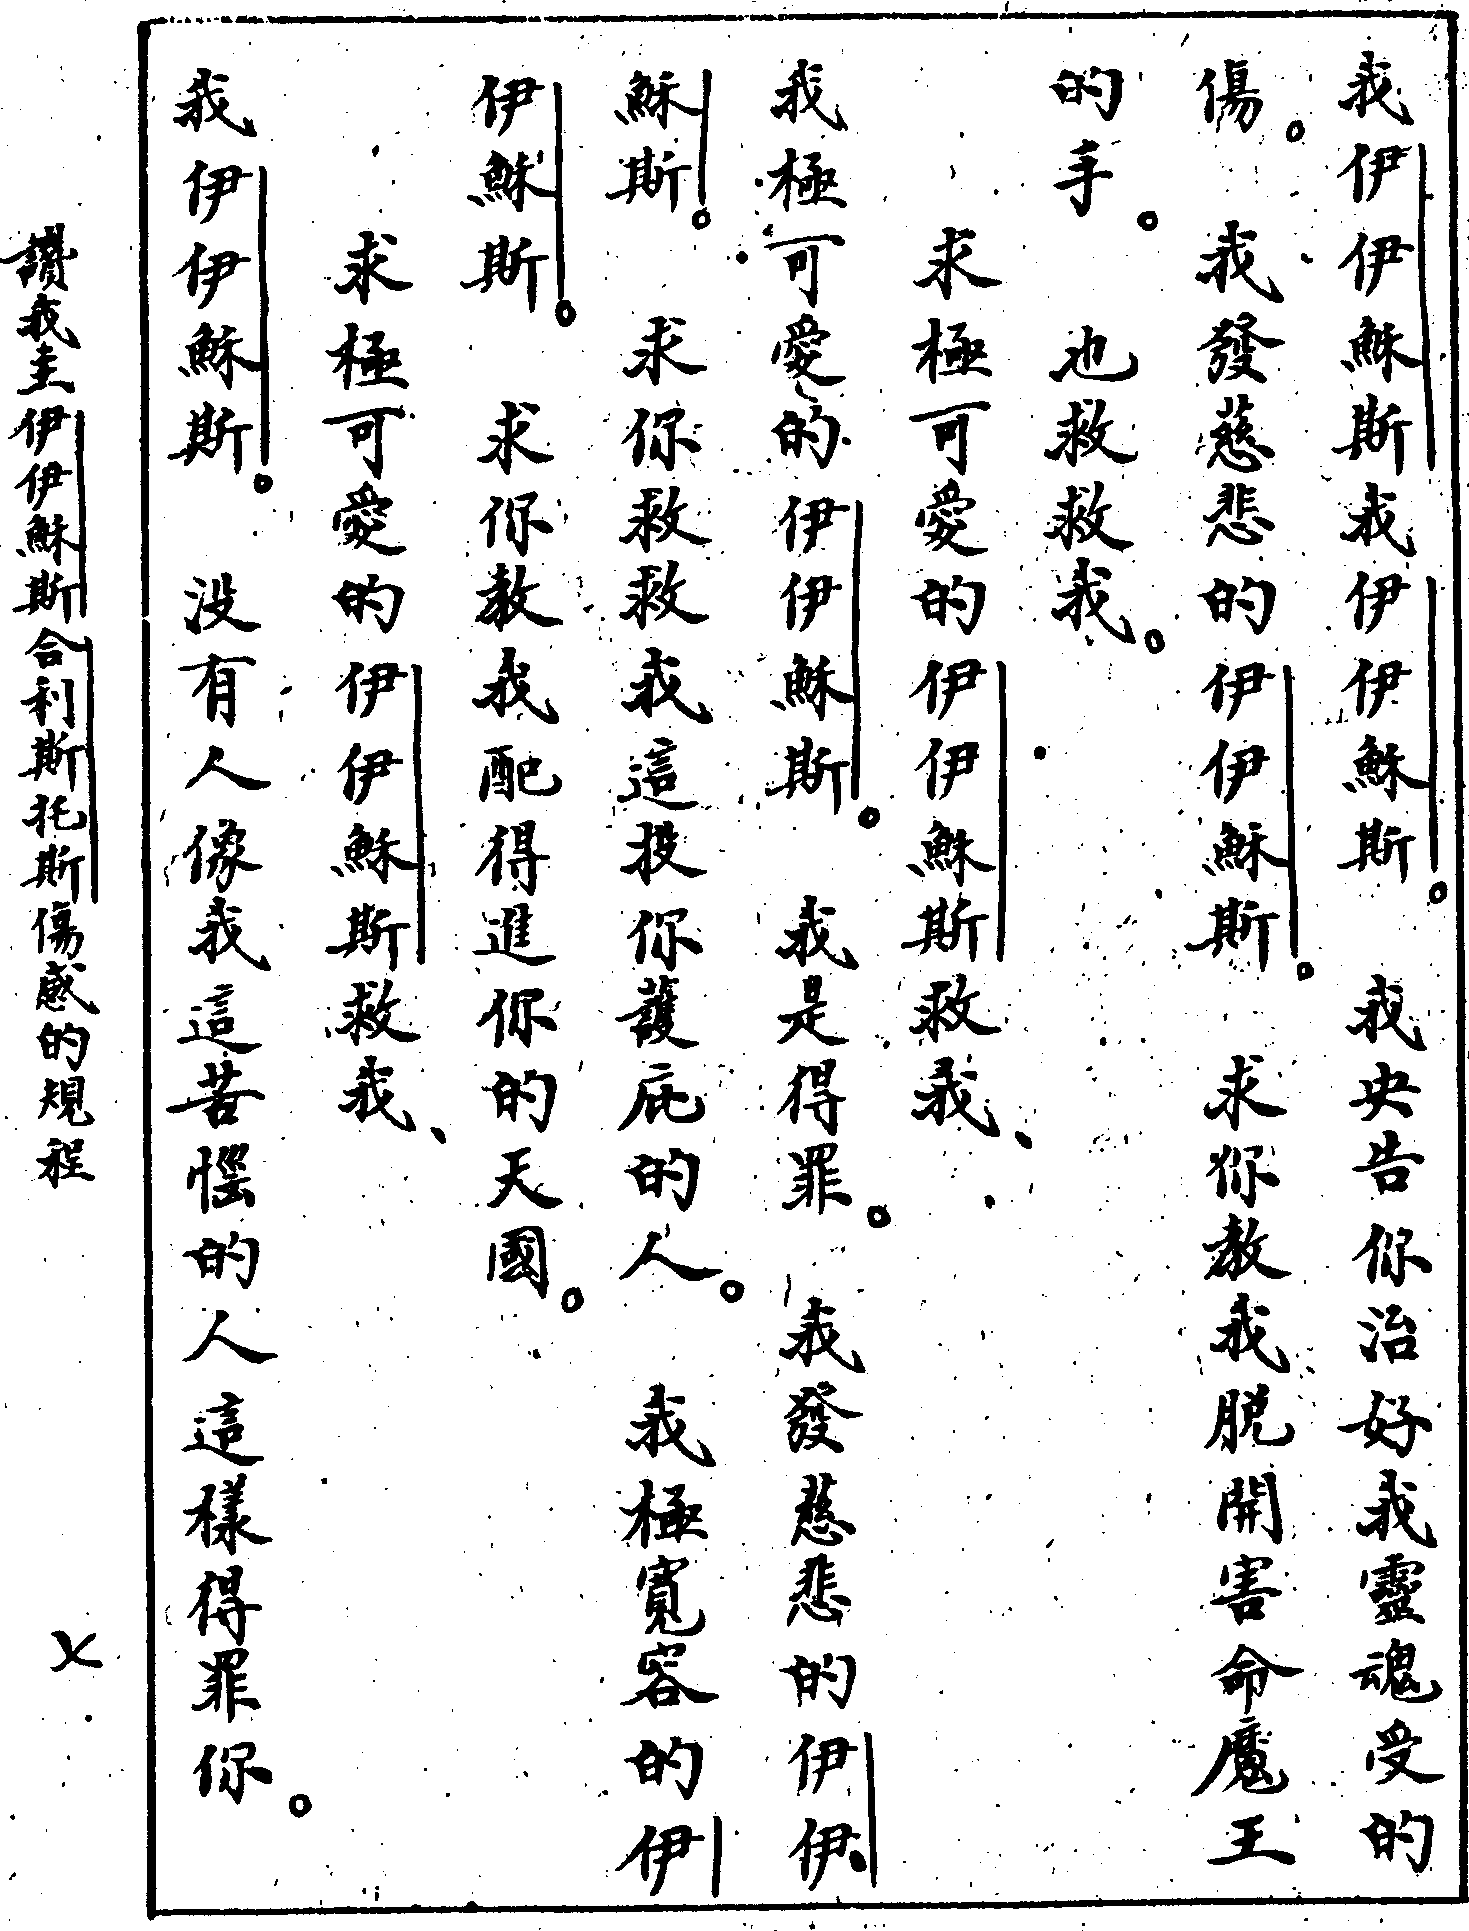 我伊伊穌斯我伊伊穌斯。我央告你治好我靈魂受的
傷。我發慈悲的伊伊穌斯。求你教我脱開害命魔王
的手。也救救我。
求極可愛的伊伊穌斯救我、
我極可愛的伊伊穌斯。我是得罪。我發慈悲的伊伊
穌斯。求你救救我這投你護庇的人。我極寬容的伊
伊穌斯。求你教我配得進你的天國。
求極可愛的伊伊穌斯救我、
我伊伊穌斯。没有人像我這苦惱的人這樣得罪你。
讚我主伊伊穌斯合利斯托斯傷感的規程
〤